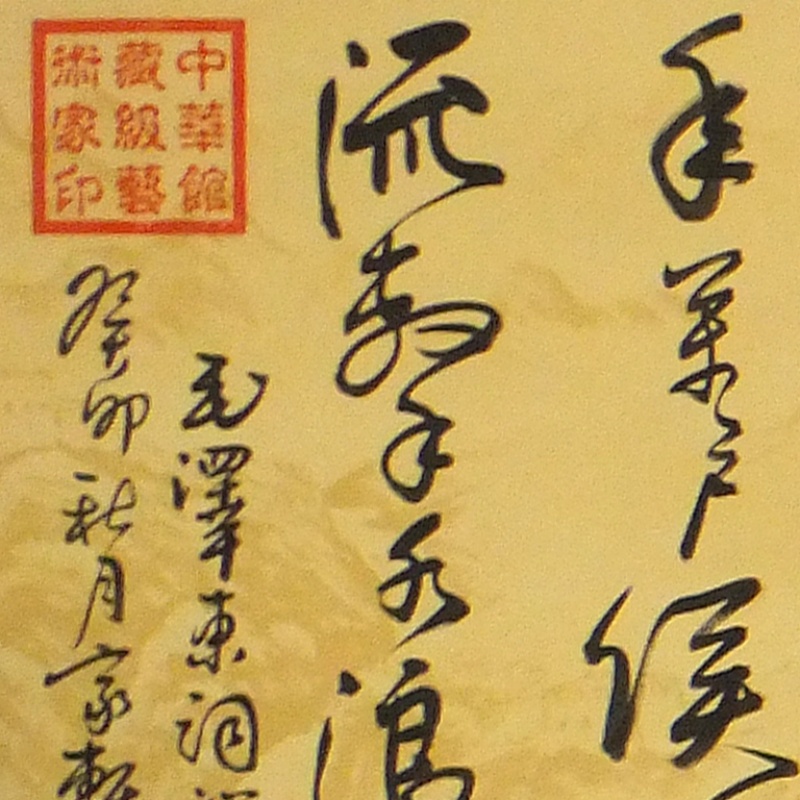 年萬戶侯
流擊水浪
毛澤東詞
中華館
藏級藝
術家印
癸卯秋月家